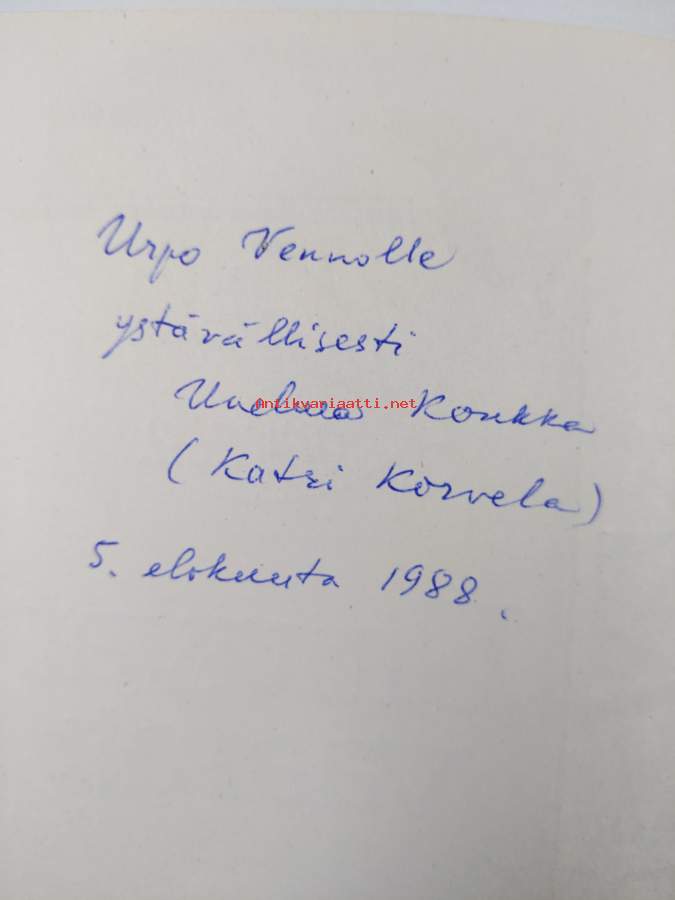 Urpo Vennolle
ystävällisesti
Unelma Konkka
(Katri Korvela)
5. elokuuta 1988.
Antikvariaatti.net